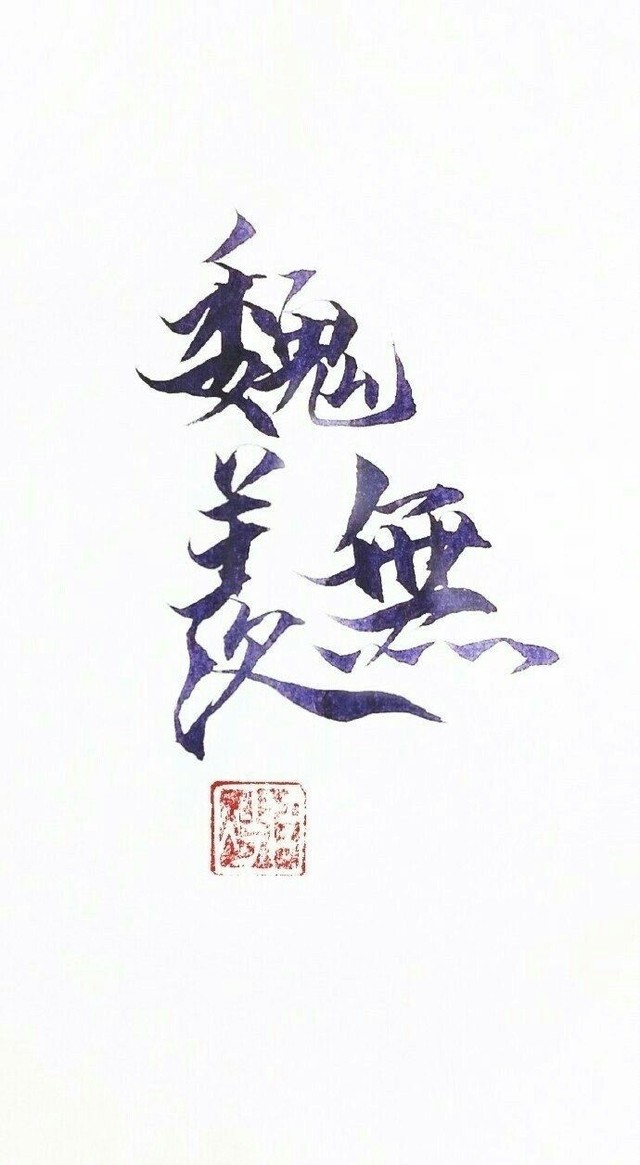 魏
無羨